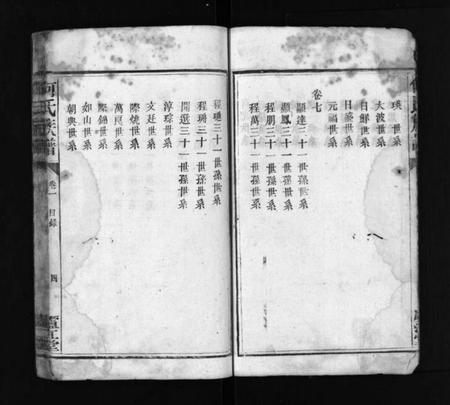 瑛世系
大波世系
日鮮世系
日盛世系
元福世系
卷七
顯達三十一世孫世系
顯鳳三十一世孫世系
程朋三十一世孫世系
程萬三十一世孫世系
程璉三十一世孫世系
程瑞三十一世孫世系
開選三十一世孫世系
淳琮世系
文廷世系
際燒世系
萬良世系
際錦世系
如山世系
朝典世系
何氏族譜
卷一
目錄
四